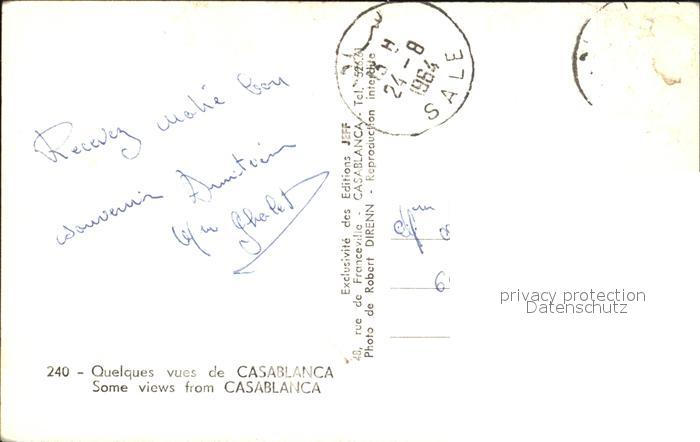 Recevez notre bon
souvenir
240 - Quelques vues de CASABLANCA
Some views from CASABLANCA
Exclusivité des Editions JEFF
48, rue de Franceville - CASABLANCA - Tel.
Photo de Robert DIRENN - Reproduction interdite
24 - 8
1964
SALE
privacy protection
Datenschutz